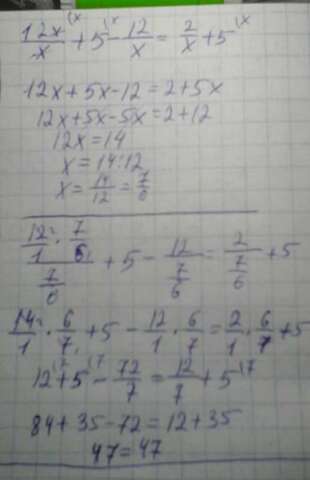 12x/x + 5 - 12/x = 2/x + 5
12x+5x-12=2+5x
12x+5x-5x=2+12
12x=14
x=14:12
x=14/12=7/6
12/1 · 7/6 / 7/6 + 5 - 12 / 7/6 = 2 / 7/6 + 5
14/1 · 6/7 + 5 - 12/1 · 6/7 = 2/1 · 6/7 + 5
12+5 - 72/7 = 12/7 + 5
84+35-72=12+35
47=47